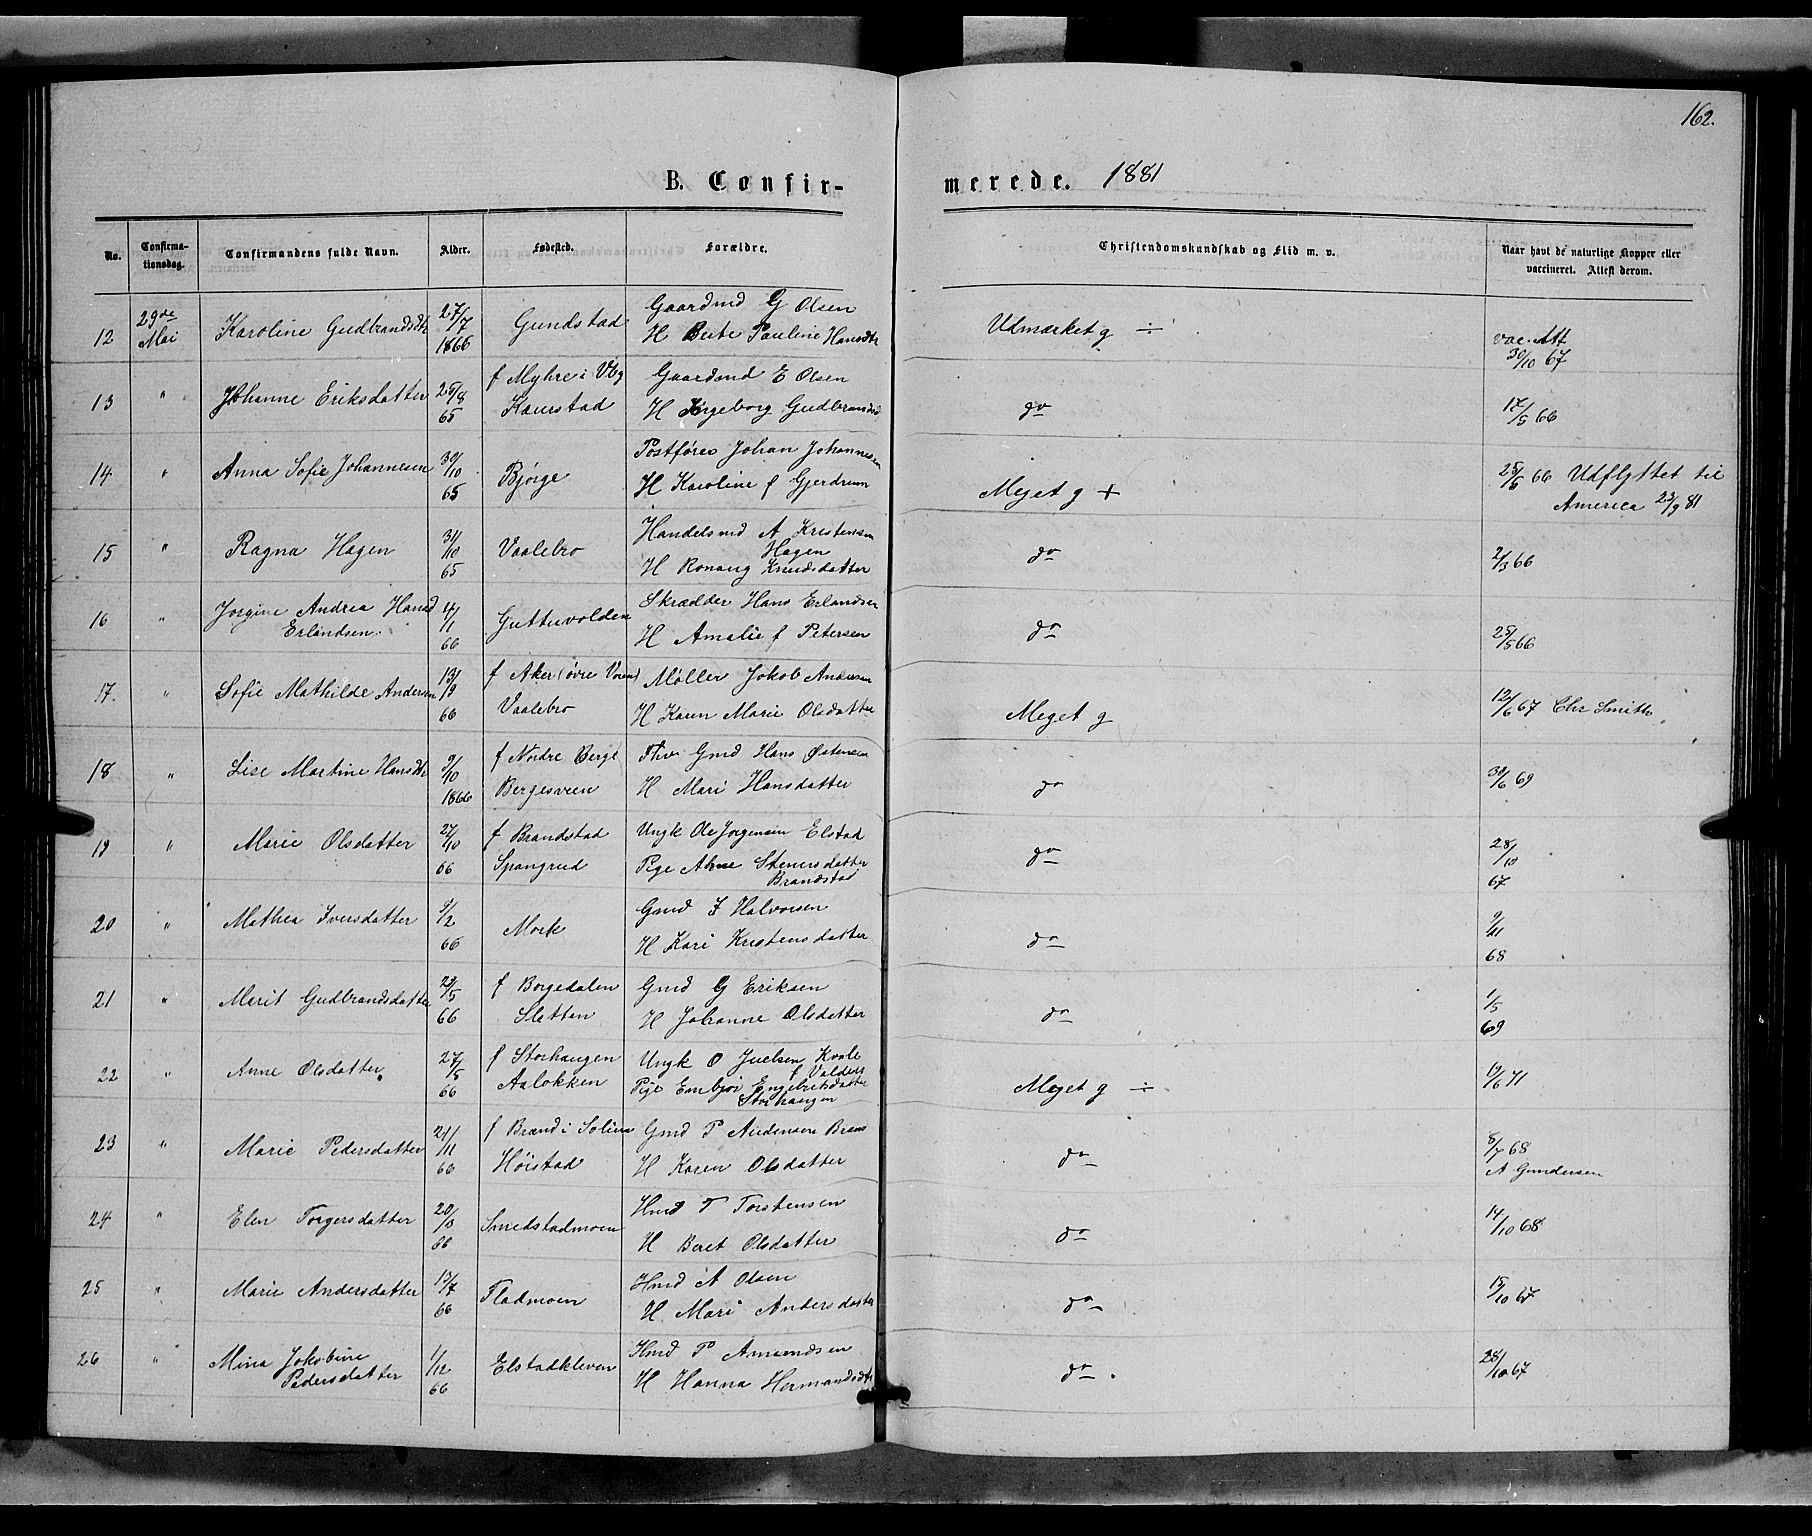 162.
B. Confirmerede. 1881
No. Confirmationsdag. Confirmandens fulde Navn. Alder. Fødested. Forældre. Christendomskundskab og Flid m. v. Naar havt de naturlige Kopper eller vaccineret. Attest derom.
12 29de Mai Karoline Gudbrandsdtr 27/7 1866 Gundstad Gaardmd G Olsen
H Beite Pauline Hansdtr Udmærket g ÷ vac. Att 30/10 67
13 " Johanne Eriksdatter 25/8 65 f Myhre i Vbg
Kaurstad Gaardmd E Olsen
H Ingeborg Gudbrandsd do 17/5 66
14 " Anna Sofie Johannesen 30/10 65 Bjørge Postfører Johan Johannesen
H Karoline f Gjerdrum Meget g + 25/6 66 Udflyttet til
America 23/9 81
15 " Ragna Hagen 31/10 65 Vaalebro Handelsmd A Kristensen
Hagen
H Ronaug Knudsdatter do 2/3 66
16 " Jorgine Andrea Hansd
Erlandsen 4/1 66 Guttuvolden Skrædder Hans Erlandsen
H Amalie f Petersen do 25/5 66
17. " Sofie Mathilde Andersen 13/9 66 f Aker (øvre Voien)
Vaalebro Møller Jakob Andersen
H Karen Marie Olsdatter Meget g 12/6 67 Chr Smith
18 " Lise Martine Hansdtr 9/10 1866 f Nordre Berge
Bergesveen Fhv Gmd Hans Østensen
H Mari Hansdatter do 30/6 69
19 " Marie Olsdatter 27/10 66 f Brandstad
Spangrud Ungk Ole Jorgensen Elstad
Pige Ahne Stenersdatter
Brandstad do 28/10 67
20 " Mathea Iversdatter 9/2 66 Mork Gmd I Halvorsen
H Kari Kristensdatter do 9/11 68
21 " Marit Gudbrandsdatter 23/5 66 f Borgedalen
Sletten Gmd G Eriksen
H Johanne Olsdatter do 1/5 69
22 " Anne Olsdatter 27/5 66 f Storhaugen
Aaløkken Ungk O Juelsen Kvale
f Valders
Pige Embjør Engebretsdatter
Storhaugen Meget g ÷ 19/6 71
23 " Marie Pedersdatter 21/11 66 f Brænd i Solium
Høistad Gmd P Andersen Bræn
H Karen Olsdatter do 8/7 68
A Gundersen
24 " Elen Torgersdatter 20/8 66 Smedstadmoen Hmd T Torstensen
H Beret Olsdatter do 14/10 68
25 " Marie Andersdatter 13/7 66 Fladmoen Hmd A Olsen
H Mari Andersdatter do 15/10 67
26 " Mina Jokobine
Pedersdatter 1/12 66 Elstadkleven Hmd P Amundsen
H Hanna Hermandsdtr do 28/10 67